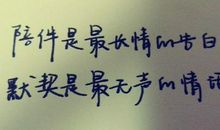 陪伴是最长情的告白
默契是最无声的情话